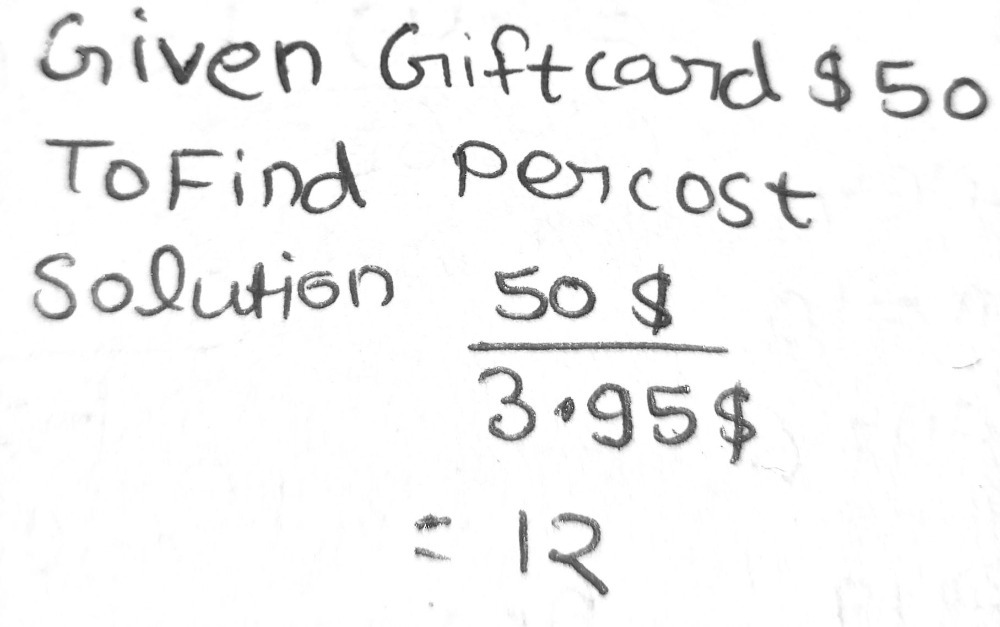 Given Giftcard $50
To Find Percost
Solution 50 $
3.95$
= 12